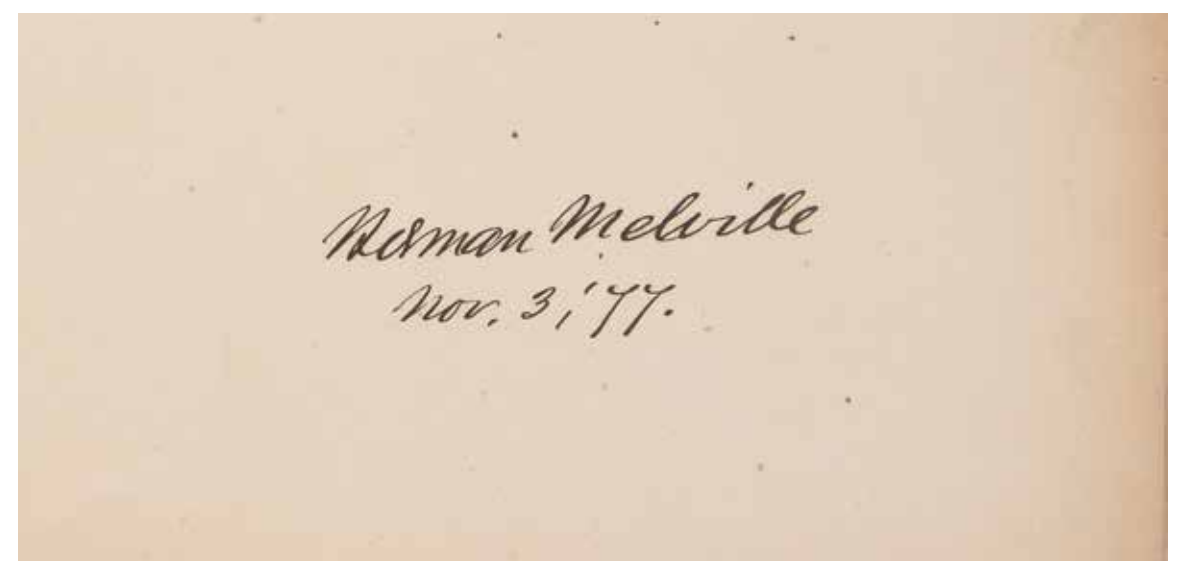 Herman Melville
Nov. 3, '77.